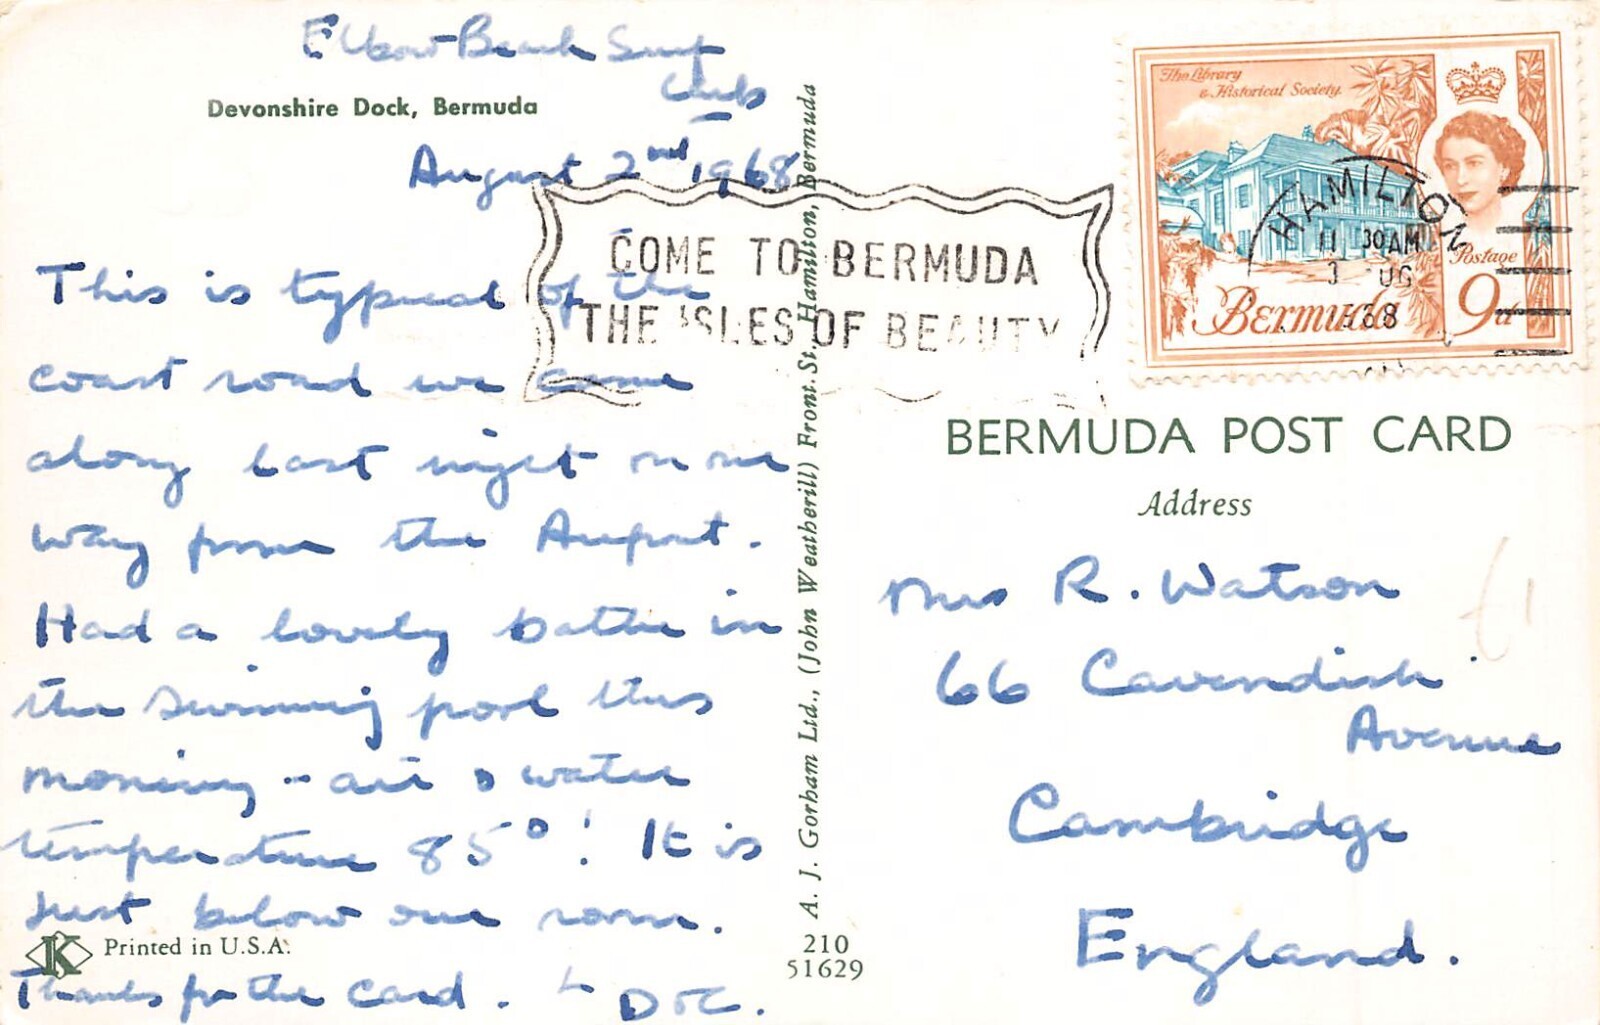 Elbow Beach Surf
Club
Devonshire Dock, Bermuda
August 2nd 1968
This is typical of the
coast road we came
along last night on our
way from the Airport.
Had a lovely bathe in
the swimming pool this
morning - air & water
temperature 85°! It is
just below our room.
Thanks for the card.
K
Printed in U.S.A.
A. J. Gorham Ltd., (John Weatherill) Front St., Hamilton, Bermuda
210
51629
COME TO BERMUDA
THE ISLES OF BEAUTY
The Library
& Historical Society.
Postage
Bermuda
9d
HAMILTON
11 30 AM
BERMUDA POST CARD
Address
Mrs R. Watson
66 Cavendish
Avenue
Cambridge
England.